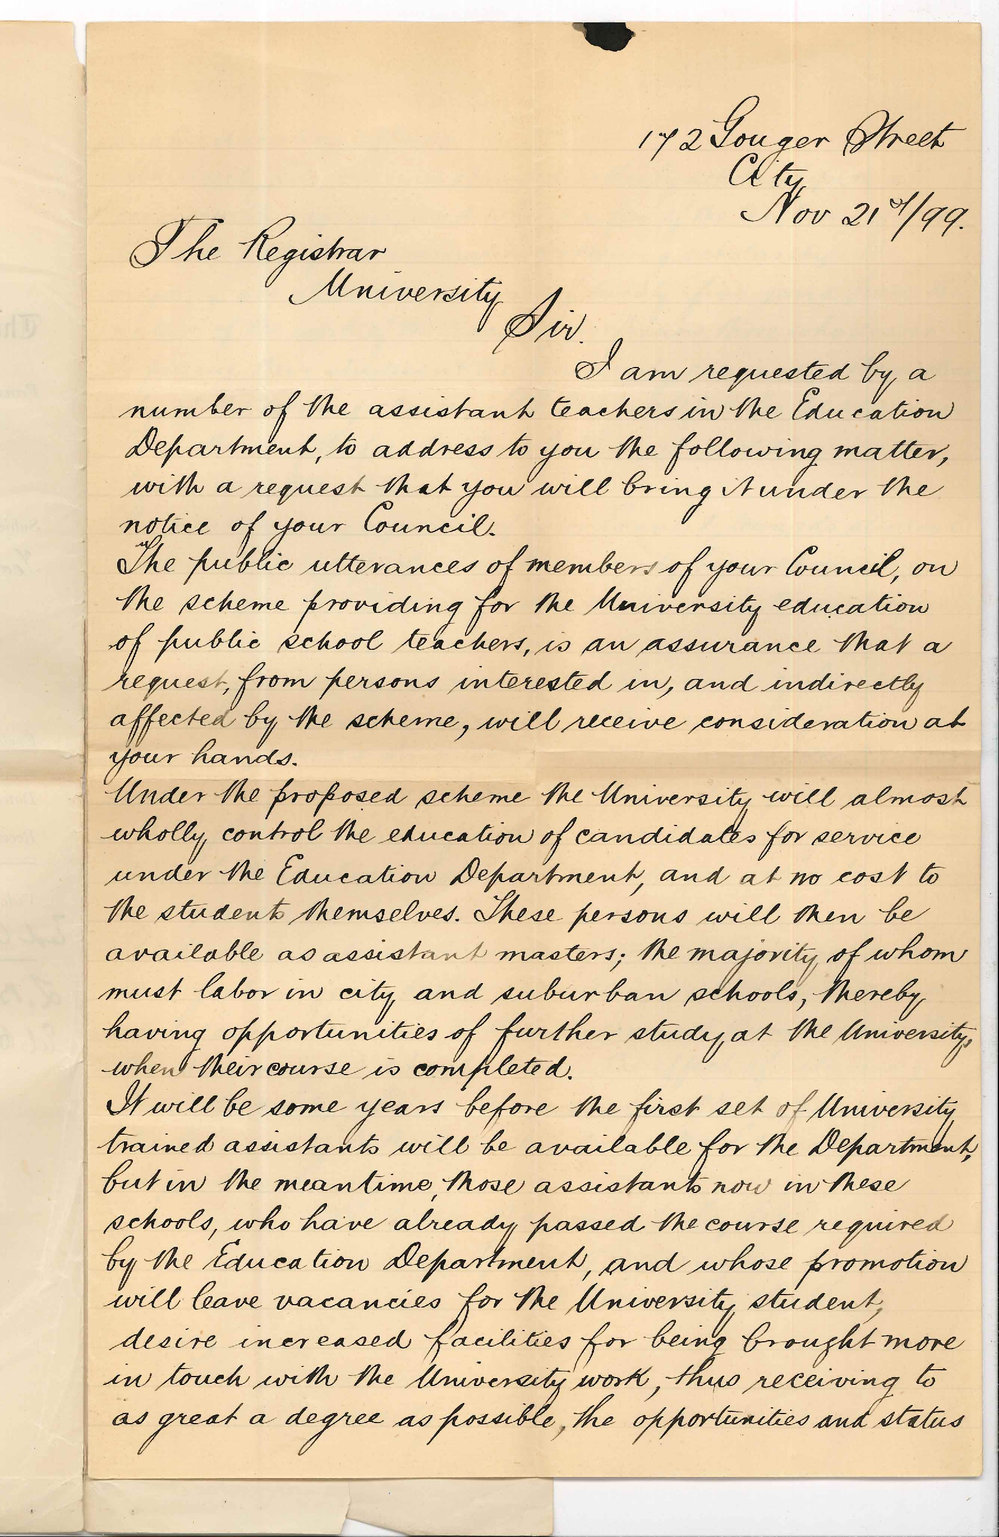 172 Gouger Street
City
Nov 21st/99.
The Registrar
University
Sir.
I am requested by a
number of the assistant teachers in the Education
Department, to address to you the following matter,
with a request that you will bring it under the
notice of your Council.
The public utterances of members of your Council, on
the scheme providing for the University education
of public school teachers, is an assurance that a
request, from persons interested in, and indirectly
affected by the scheme, will receive consideration at
your hands.
Under the proposed scheme the University will almost
wholly control the education of candidates for service
under the Education Department, and at no cost to
the students themselves. These persons will then be
available as assistant masters; the majority of whom
must labor in city and suburban schools, thereby
having opportunities of further study at the University,
when their course is completed.
It will be some years before the first set of University
trained assistants will be available for the Department,
but in the meantime, those assistants now in these
schools, who have already passed the course required
by the Education Department, and whose promotion
will leave vacancies for the University student,
desire increased facilities for being brought more
in touch with the University work, thus receiving to
as great a degree as possible, the opportunities and status